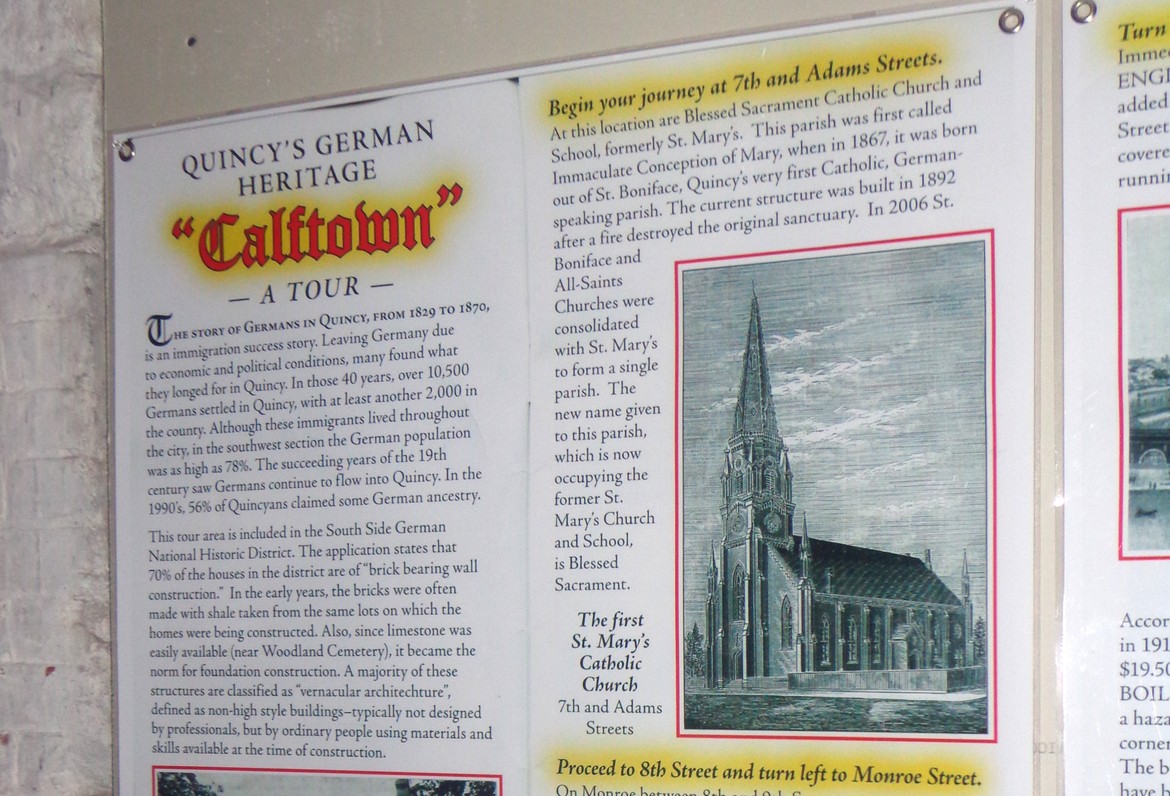 QUINCY'S GERMAN
HERITAGE
"Calftown"
— A TOUR —
THE STORY OF GERMANS IN QUINCY, FROM 1829 TO 1870,
is an immigration success story. Leaving Germany due
to economic and political conditions, many found what
they longed for in Quincy. In those 40 years, over 10,500
Germans settled in Quincy, with at least another 2,000 in
the county. Although these immigrants lived throughout
the city, in the southwest section the German population
was as high as 78%. The succeeding years of the 19th
century saw Germans continue to flow into Quincy. In the
1990's, 56% of Quincyans claimed some German ancestry.
This tour area is included in the South Side German
National Historic District. The application states that
70% of the houses in the district are of "brick bearing wall
construction." In the early years, the bricks were often
made with shale taken from the same lots on which the
homes were being constructed. Also, since limestone was
easily available (near Woodland Cemetery), it became the
norm for foundation construction. A majority of these
structures are classified as "vernacular architechture",
defined as non-high style buildings–typically not designed
by professionals, but by ordinary people using materials and
skills available at the time of construction.
Begin your journey at 7th and Adams Streets.
At this location are Blessed Sacrament Catholic Church and
School, formerly St. Mary's. This parish was first called
Immaculate Conception of Mary, when in 1867, it was born
out of St. Boniface, Quincy's very first Catholic, German-
speaking parish. The current structure was built in 1892
after a fire destroyed the original sanctuary. In 2006 St.
Boniface and
All-Saints
Churches were
consolidated
with St. Mary's
to form a single
parish. The
new name given
to this parish,
which is now
occupying the
former St.
Mary's Church
and School,
is Blessed
Sacrament.
The first
St. Mary's
Catholic
Church
7th and Adams
Streets
Proceed to 8th Street and turn left to Monroe Street.
On Monroe between 8th and 9th
Turn
Imme
ENGI
added
Street
covere
runnin
Accor
in 191
$19.50
BOIL
a haza
corner
The b
have b